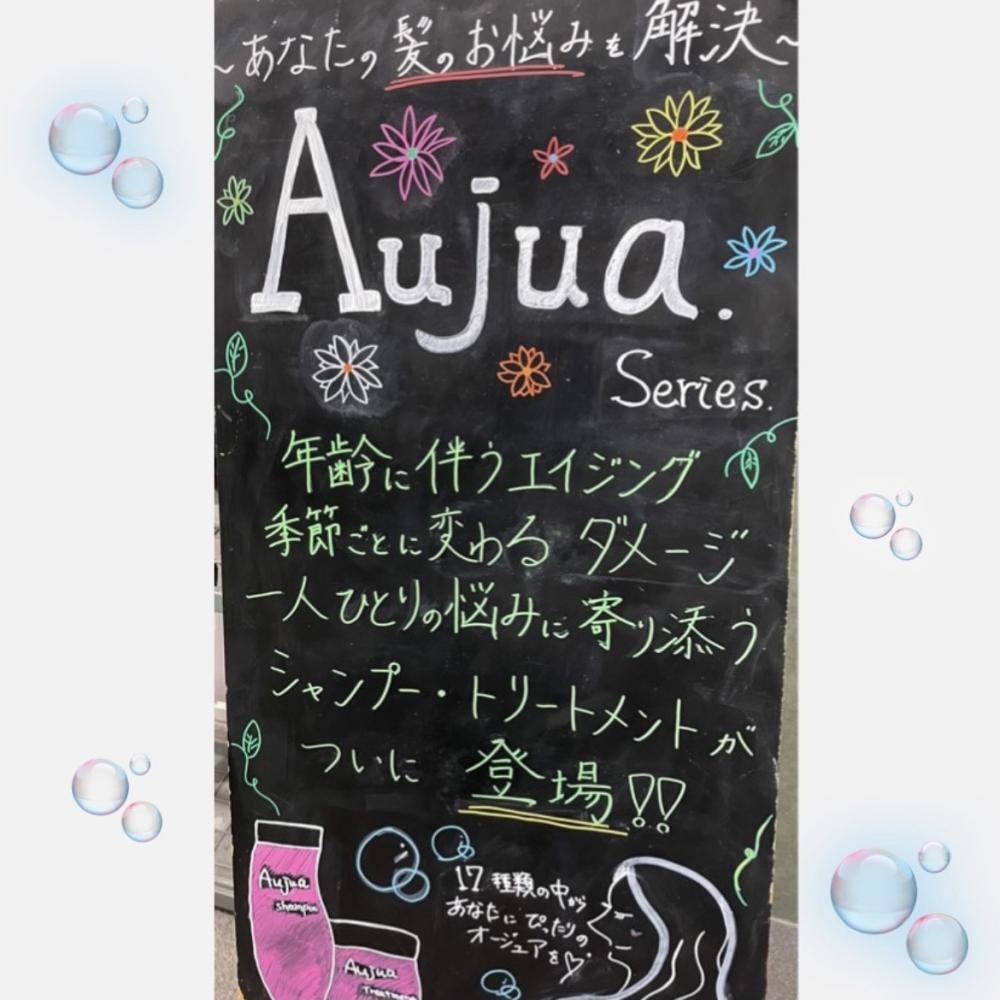 ～あなたの髪のお悩みを解決～
Aujua.
Series.
年齢に伴うエイジング
季節ごとに変わるダメージ
一人ひとりの悩みに寄り添う
シャンプー・トリートメントが
ついに登場!!
Aujua
shampoo
Aujua
Treatment
17種類の中から
あなたにぴったりの
オージュアを♡